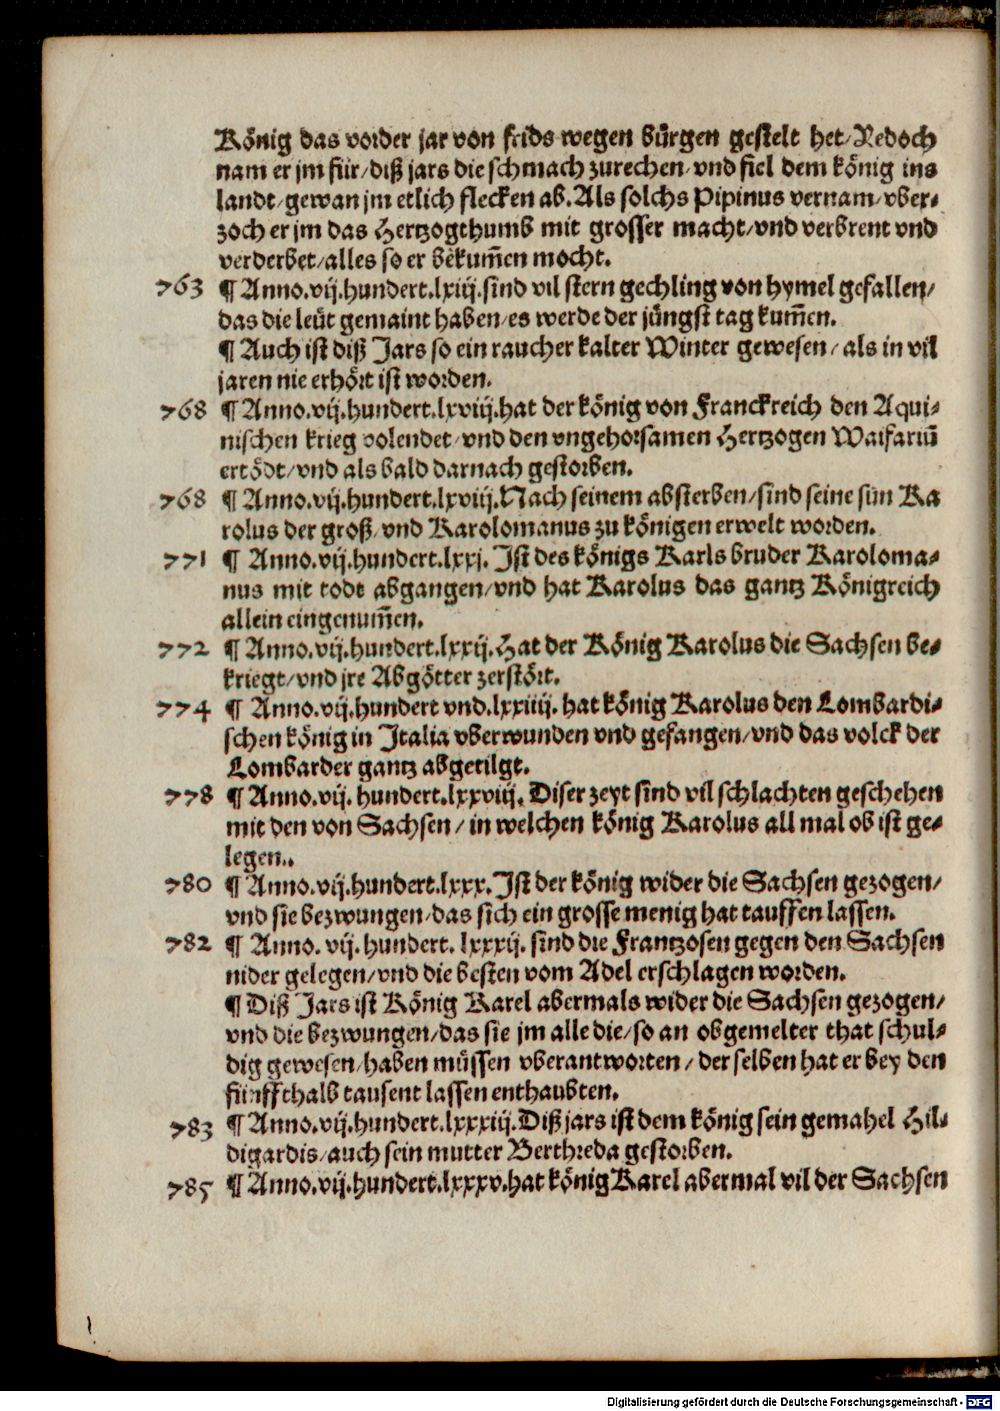 König das vorder jar von frids wegen bürgen gestelt het/Yedoch
nam er jm für/diß jars die schmach zurechen/vnd fiel dem könig ins
landt/gewan jm etlich flecken ab. Als solchs Pipinus vernam/vber⸗
zoch er jm das Hertzogthumb mit grosser macht/vnd verbrent vnd
verderbet/alles so er bekum̄en mocht.
763 ¶ Anno.vij.hundert.lxiij.sind vil stern gechling von hymel gefallen/
das die leüt gemaint haben/es werde der jüngst tag kum̄en.
¶ Auch ist diß Jars so ein raucher kalter Winter gewesen/als in vil
jaren nie erhört ist worden.
768 ¶ Anno.vij.hundert.lxviij.hat der könig von Franckreich den Aqui⸗
nischen krieg volendet/vnd den vngehorsamen Hertzogen Waifariū
ertödt/vnd als bald darnach gestorben.
768 ¶ Anno.vij.hundert.lxviij.Nach seinem absterben/sind seine sün Ka
rolus der groß/vnd Karolomanus zu königen erwelt worden.
771 ¶ Anno.vij.hundert.lxxj. Ist des königs Karls bruder Karoloma⸗
nus mit todt abgangen/vnd hat Karolus das gantz Königreich
allein eingenum̄en.
772 ¶ Anno.vij.hundert.lxxij.Hat der König Karolus die Sachsen be⸗
kriegt/vnd jre Abgötter zerstört.
774 ¶ Anno.vij.hundert vnd.lxxiiij. hat könig Karolus den Lombardi⸗
schen könig in Italia vberwunden vnd gefangen/vnd das volck der
Lombarder gantz abgetilgt.
778 ¶ Anno.vij. hundert.lxxviij. Diser zeyt sind vil schlachten geschehen
mit den von Sachsen/in welchen könig Karolus all mal ob ist ge⸗
legen..
780 ¶ Anno.vij.hundert.lxxx.Ist der könig wider die Sachsen gezogen/
vnd sie bezwungen/das sich ein grosse menig hat tauffen lassen.
782 ¶ Anno. vij. hundert. lxxxij. sind die Frantzosen gegen den Sachsen
nider gelegen/vnd die besten vom Adel erschlagen worden.
¶ Diß Jars ist König Karel abermals wider die Sachsen gezogen/
vnd die bezwungen/das sie jm alle die/so an obgemelter that schul⸗
dig gewesen/haben müssen vberantworten/der selben hat er bey den
fünffthalb tausent lassen enthaubten.
783 ¶ Anno.vij.hundert.lxxxiij.Diß jars ist dem könig sein gemahel Hil⸗
digardis/auch sein mutter Berthreda gestorben.
785 ¶ Anno.vij.hundert.lxxxv.hat könig Karel abermal vil der Sachsen
Digitalisierung gefördert durch die Deutsche Forschungsgemeinschaft - DFG